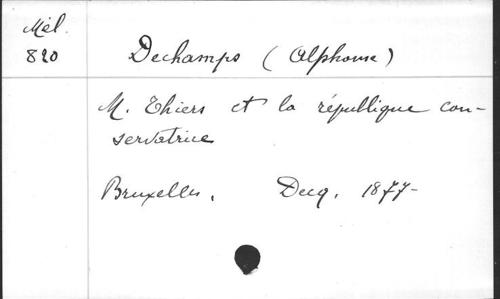 Mél.
820
Dechamps (Alphonse)
M. Thiers et la république con-
servatrice
Bruxelles, Decq, 1877-